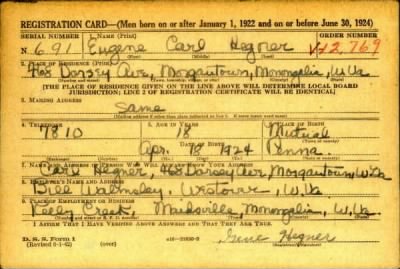 REGISTRATION CARD—(Men born on or after January 1, 1922 and on or before June 30, 1924)
SERIAL NUMBER 1. NAME (Print) ORDER NUMBER
N 691 Eugene Carl Hegner 12,769
2. PLACE OF RESIDENCE (Print)
468 Dorsey Ave, Morgantown, Monongalia, W.Va
[THE PLACE OF RESIDENCE GIVEN ON THE LINE ABOVE WILL DETERMINE LOCAL BOARD
JURISDICTION; LINE 2 OF REGISTRATION CERTIFICATE WILL BE IDENTICAL]
3. MAILING ADDRESS
Same
4. TELEPHONE 5. AGE IN YEARS 6. PLACE OF BIRTH
7810 18 Mutual
Apr. 1924 Penna.
7. NAME AND ADDRESS OF PERSON WHO WILL ALWAYS KNOW YOUR ADDRESS
Carl Hegner, 468 Dorsey Ave, Morgantown W.Va
8. EMPLOYER'S NAME AND ADDRESS
Bill Walmsley, Westover, W.Va
9. PLACE OF EMPLOYMENT OR BUSINESS
Kelly Creek, Maidsville, Monongalia, W.Va
I AFFIRM THAT I HAVE VERIFIED ABOVE ANSWERS AND THAT THEY ARE TRUE.
D. S. S. Form 1
(Revised 6-1-42) (over)
Gene Hegner